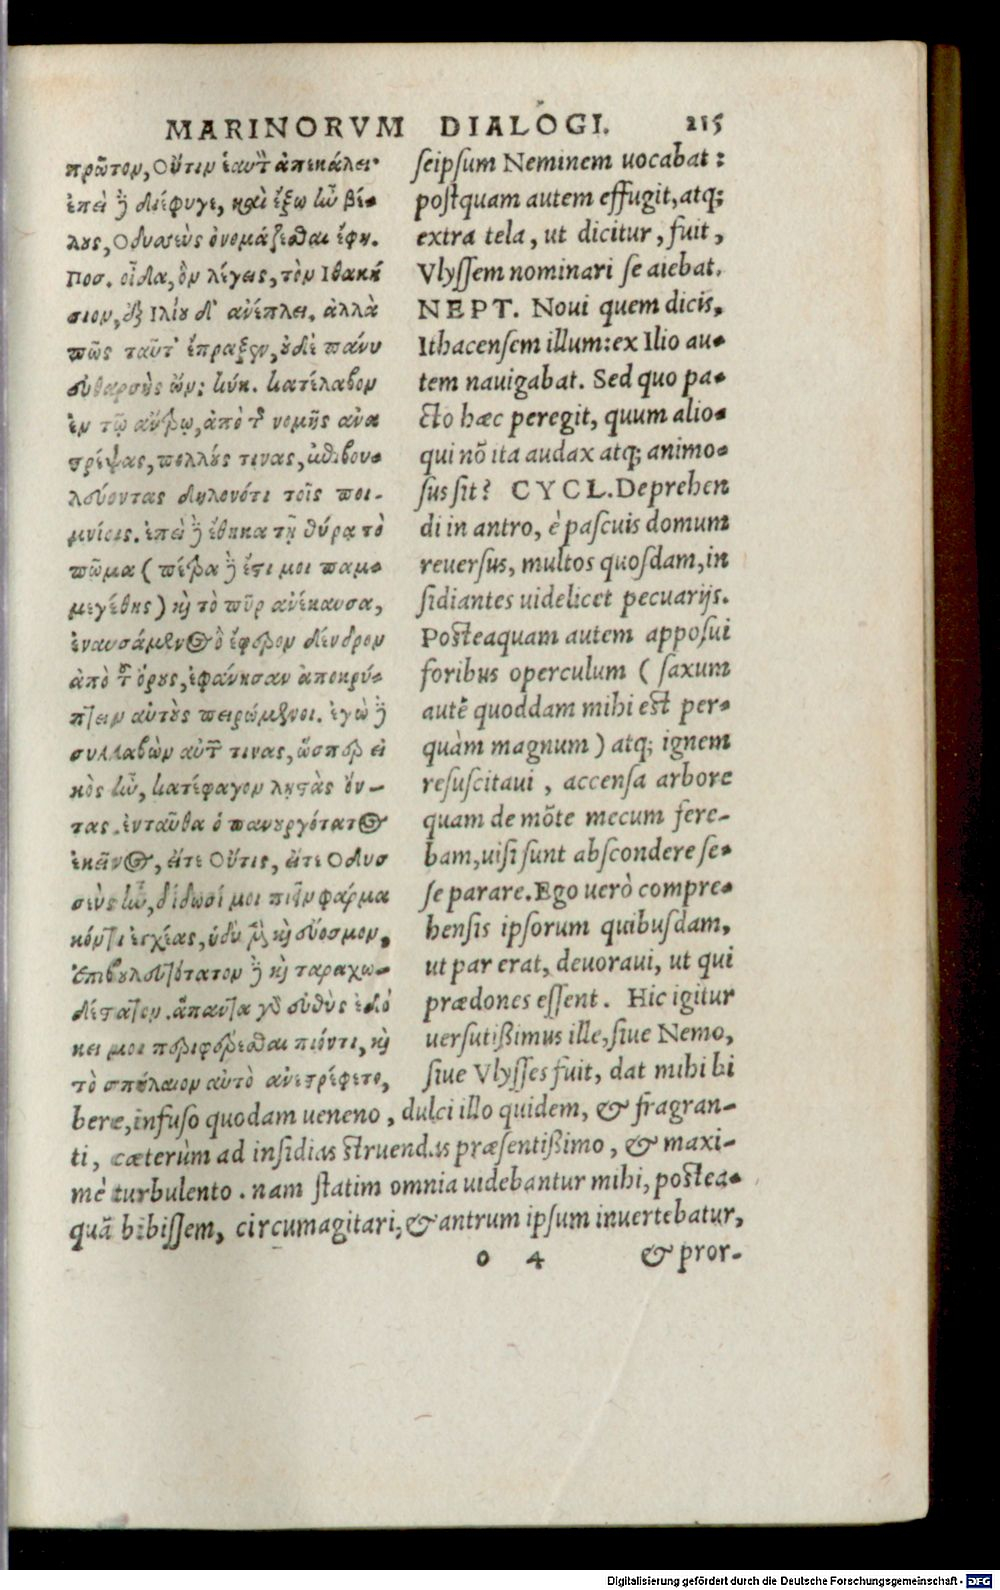 MARINORVM DIALOGI. 215
πρῶτον, Οὖτιν ἑαυτὸν ἀπεκάλει·
ἐπεὶ δὲ διέφυγε, καὶ ἔξω ἦν βέ-
λους, Ὀδυσσεὺς ὀνομάζεσθαι ἔφη.
Ποσ. οἶδα, ὃν λέγεις, τὸν Ἰθακή
σιον, ἐξ Ἰλίου δ' ἀνέπλει. ἀλλὰ
πῶς ταῦτ' ἔπραξεν, οὐδὲ πάνυ
εὐθαρσὴς ὤν; Κύκ. κατέλαβον
ἐν τῷ ἄντρῳ, ἀπὸ τῆς νομῆς ἀνα
στρέψας, πολλούς τινας, ἐπιβου-
λεύοντας δηλονότι τοῖς ποι-
μνίοις. ἐπεὶ δὲ ἔθηκα τῇ θύρᾳ τὸ
πῶμα (πέτρα δὲ ἔστι μοι παμ-
μεγέθης) καὶ τὸ πῦρ ἀνέκαυσα,
ἐναυσάμενος ὃ ἔφερον δένδρον
ἀπὸ τοῦ ὄρους, ἐφάνησαν ἀποκρύ-
πτειν αὑτοὺς πειρώμενοι. ἐγὼ δὲ
συλλαβὼν αὐτῶν τινας, ὥσπερ εἰ
κὸς ἦν, κατέφαγον λῃστὰς ὄν-
τας. ἐνταῦθα ὁ πανουργότατος
ἐκεῖνος, εἴτε Οὖτις, εἴτε Ὀδυσ
σεὺς ἦν, δίδωσί μοι πιεῖν φάρμα
κόν τι ἐγχέας, ἡδὺ μὲν καὶ εὔοσμον,
ἐπιβουλευτότατον δὲ καὶ ταραχω-
δέστατον. ἅπαντα γὰρ εὐθὺς ἐδό
κει μοι περιφέρεσθαι πιόντι, καὶ
τὸ σπήλαιον αὐτὸ ἀνεστρέφετο,
seipsum Neminem uocabat:
postquam autem effugit, atq;
extra tela, ut dicitur, fuit,
Vlyssem nominari se aiebat.
NEPT. Noui quem dicis,
Ithacensem illum: ex Ilio au-
tem nauigabat. Sed quo pa-
cto hæc peregit, quum alio-
qui nõ ita audax atq; animo-
sus sit? CYCL. Deprehen
di in antro, è pascuis domum
reuersus, multos quosdam, in
sidiantes uidelicet pecuarijs.
Posteaquam autem apposui
foribus operculum (saxum
autē quoddam mihi est per-
quàm magnum) atq; ignem
resuscitaui, accensa arbore
quam de mõte mecum fere-
bam, uisi sunt abscondere se-
se parare. Ego uerò compre-
hensis ipsorum quibusdam,
ut par erat, deuoraui, ut qui
prædones essent. Hic igitur
uersutißimus ille, siue Nemo,
siue Vlysses fuit, dat mihi bi
bere, infuso quodam ueneno, dulci illo quidem, & fragran-
ti, cæterùm ad insidias struendas præsentißimo, & maxi-
mè turbulento. nam statim omnia uidebantur mihi, postea-
quã bibissem, circumagitari; & antrum ipsum inuertebatur,
o 4 & pror-
Digitalisierung gefördert durch die Deutsche Forschungsgemeinschaft - DFG